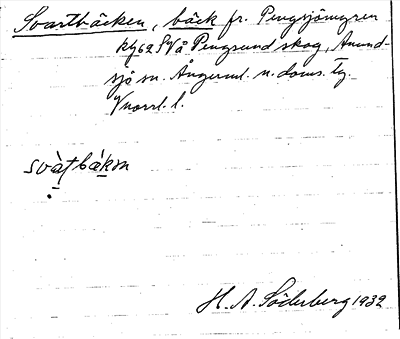 Svartbäcken, bäck fr. Pengsjömyren
kg 62 SV å Pengsund skog, Anund-
sjö sn. Ångerml. n. doms. tg.
Vnorrl. l.
svàtbákən
H. A. Söderberg 1932